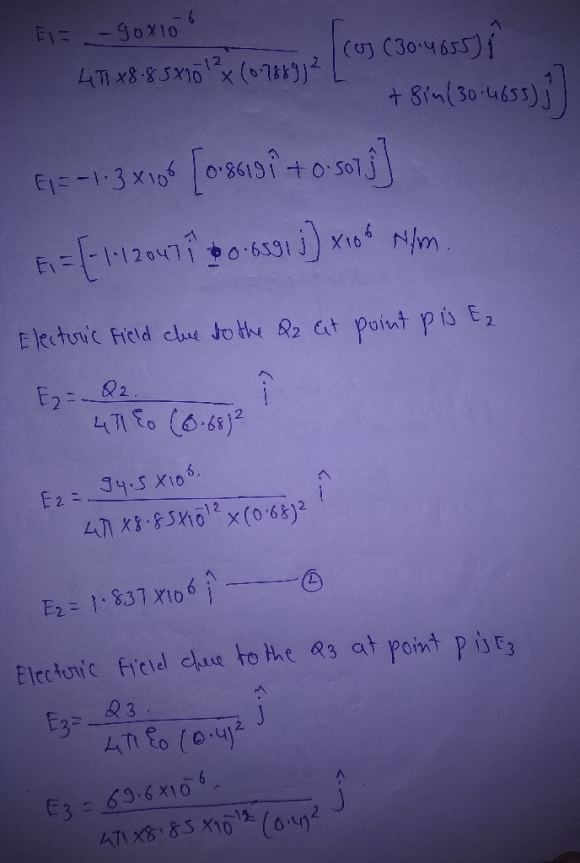 E1 = -90x10^-6 / 4π x8.85x10^-12 x (0.7889)^2 [cos (30.4655) î
+ Sin(30.4655) ĵ]
E1 = -1.3 x10^6 [0.8619 î + 0.507 ĵ]
E1 = [-1.12047 î - 0.6591 j] x10^6 N/m.
Electric Field due to the Q2 at point p is E2
E2 = Q2. / 4π ε0 (0.68)^2 î
E2 = 94.5 x10^6. / 4π x8.85x10^-12 x (0.68)^2 î
E2 = 1.837 x10^6 î —— ②
Electric Field due to the Q3 at point p is E3
E3 = Q3. / 4π ε0 (0.4)^2 ĵ
E3 = 69.6x10^-6. / 4π x8.85 x10^-12 (0.4)^2 ĵ